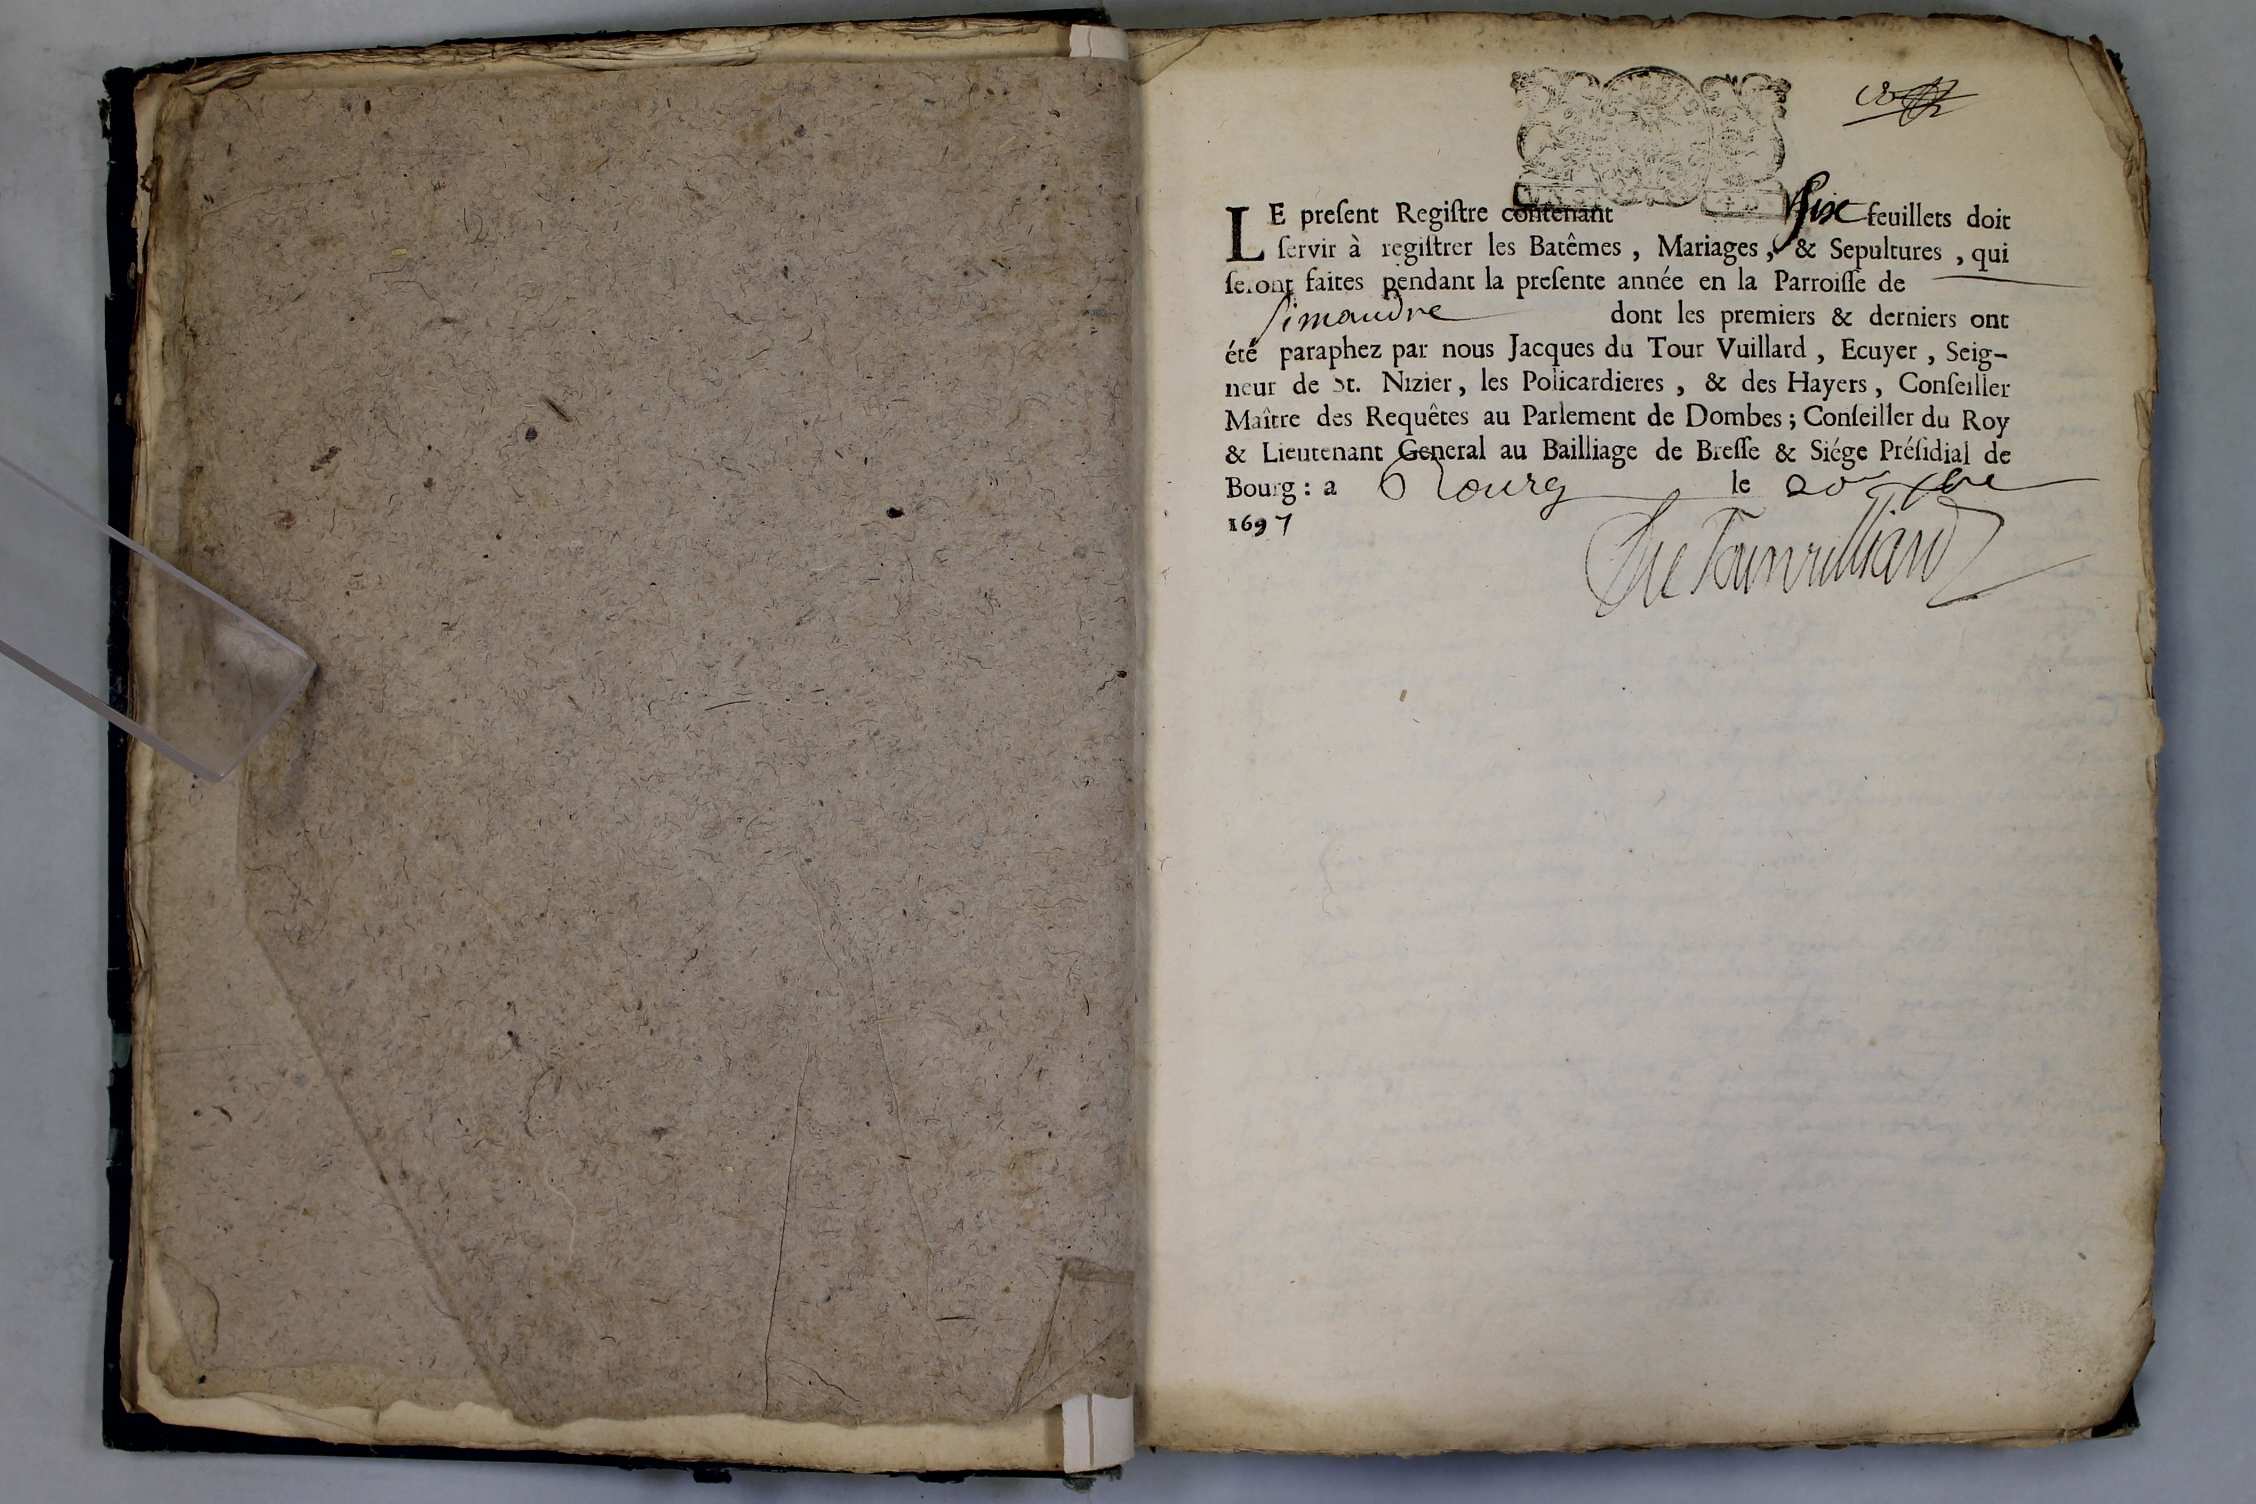 LE preſent Regiſtre contenant ſix feuillets doit
ſervir à regiſtrer les Batêmes, Mariages, & Sepultures, qui
ſeront faites pendant la preſente année en la Parroiſſe de
ſimandre dont les premiers & derniers ont
été paraphez par nous Jacques du Tour Vuillard, Ecuyer, Seig-
neur de St. Nizier, les Policardieres, & des Hayers, Conſeiller
Maître des Requêtes au Parlement de Dombes; Conſeiller du Roy
& Lieutenant General au Bailliage de Breſſe & Siége Préſidial de
Bourg: a Bourg le 20
1697